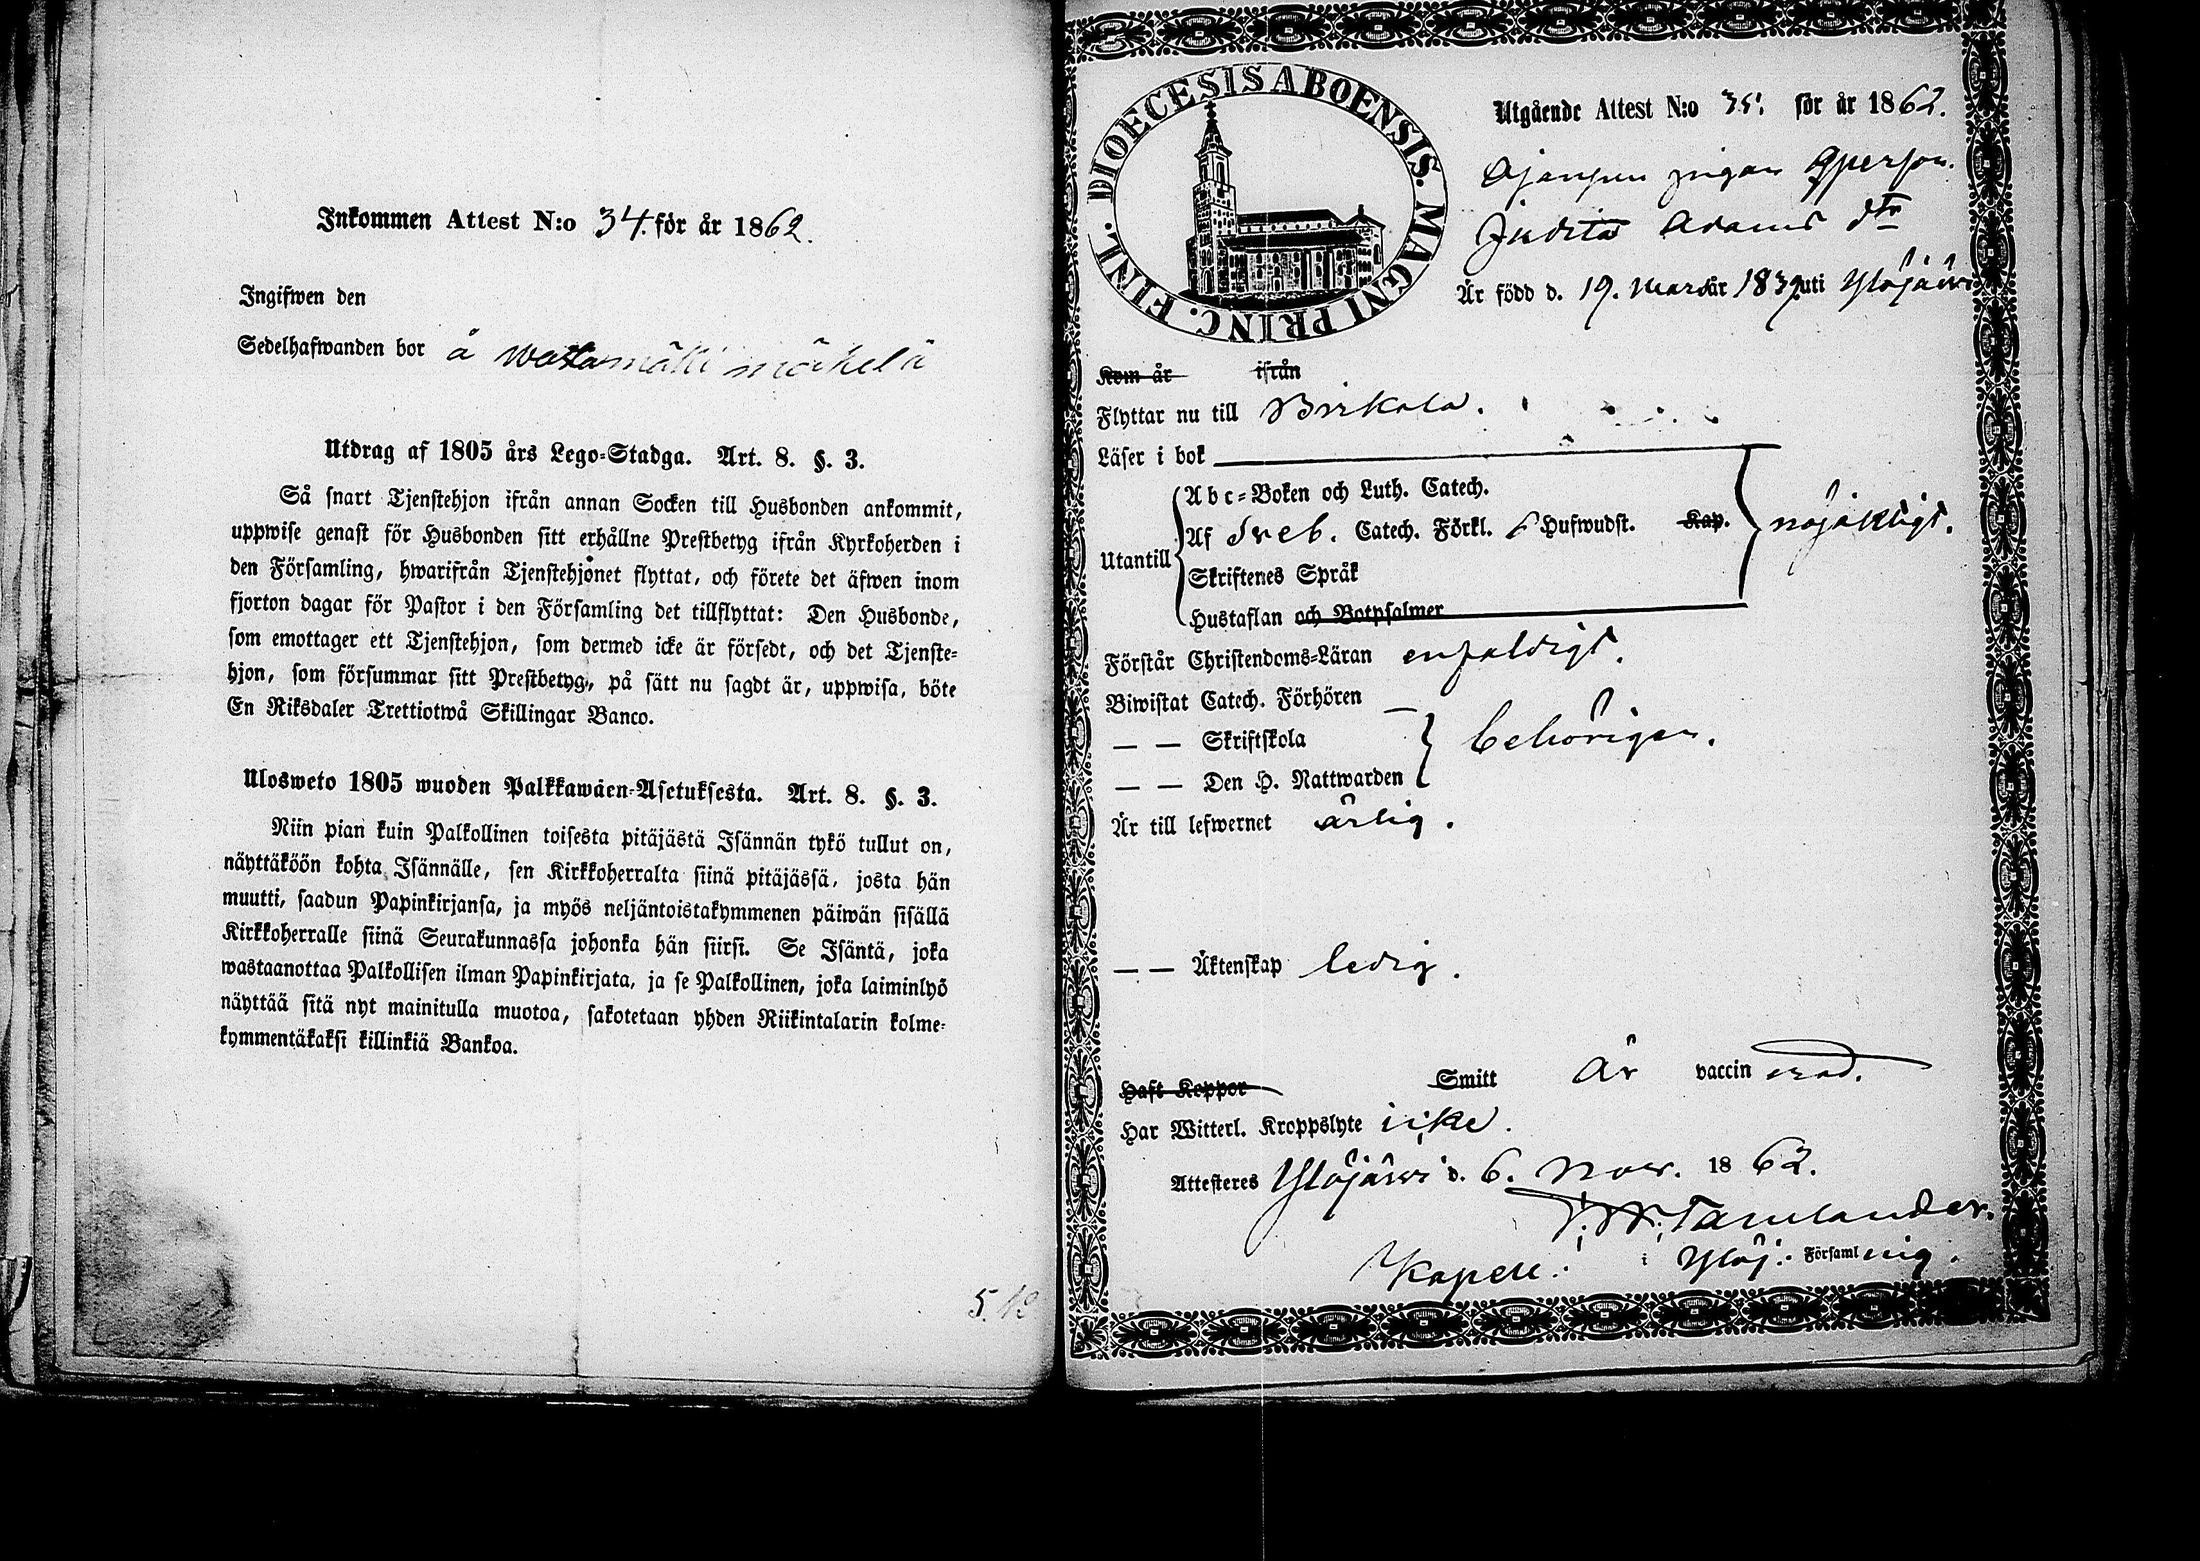 Inkommen Attest N:o 34. för år 1862.
Ingifwen den
Sedelhafwanden bor å
Utdrag af 1805 års Lego-Stadga. Art. 8. §. 3.
Så snart Tjenstehjon ifrån annan Socken till Husbonden ankommit,
uppwise genast för Husbonden sitt erhållne Prestbetyg ifrån Kyrkoherden i
den Församling, hwarifrån Tjenstehjonet flyttat, och förete det äfwen inom
fjorton dagar för Pastor i den Församling det tillflyttat: Den Husbonde,
som emottager ett Tjenstehjon, som dermed icke är försedt, och det Tjenste-
hjon, som försummar sitt Prestbetyg, på sätt nu sagdt är, uppwisa, böte
En Riksdaler Trettiotwå Skillingar Banco.
Ulosweto 1805 wuoden Palkkawäen-Asetuksesta. Art. 8. §. 3.
Niin pian kuin Palkollinen toisesta pitäjästä Isännän tykö tullut on,
näyttäköön kohta Isännälle, sen Kirkkoherralta siinä pitäjässä, josta hän
muutti, saadun Papinkirjansa, ja myös neljäntoistakymmenen päiwän sisällä
Kirkkoherralle siinä Seurakunnassa johonka hän siirsi. Se Isäntä, joka
wastaanottaa Palkollisen ilman Papinkirjata, ja se Palkollinen, joka laiminlyö
näyttää sitä nyt mainitulla muotoa, sakotetaan yhden Riikintalarin kolme-
kymmentäkaksi killinkiä Bankoa.
DIOECESIS ABOENSIS. MAGNI PRINC. FINL.
Utgående Attest N:o 35. för år 1862.
pigan
Judita Adams dtr
Är född d. 19. Mars år 1839 uti Ylöjärvi
Kom år ifrån
Flyttar nu till Birkala.
Läser i bok
Utantill
Abc-Boken och Luth. Catech.
Af Sveb. Catech. Förkl. 6 Hufwudst. Kap.
Skriftenes Språk
Hustaflan och Botpsalmer
nöjaktigt.
Förstår Christendoms-Läran enfaldigt.
Biwistat Catech. Förhören
— — Skriftskola
— — Den H. Nattwarden
behörigen.
Är till lefwernet ärlig.
— — Äktenskap ledig.
Haft Koppor Smitt är vaccinerad.
Har Witterl. Kroppslyte icke.
Attesteres Ylöjärvi d. 6. Nov. 1862.
Tamlander.
Kapell. i Ylöj. Församling.